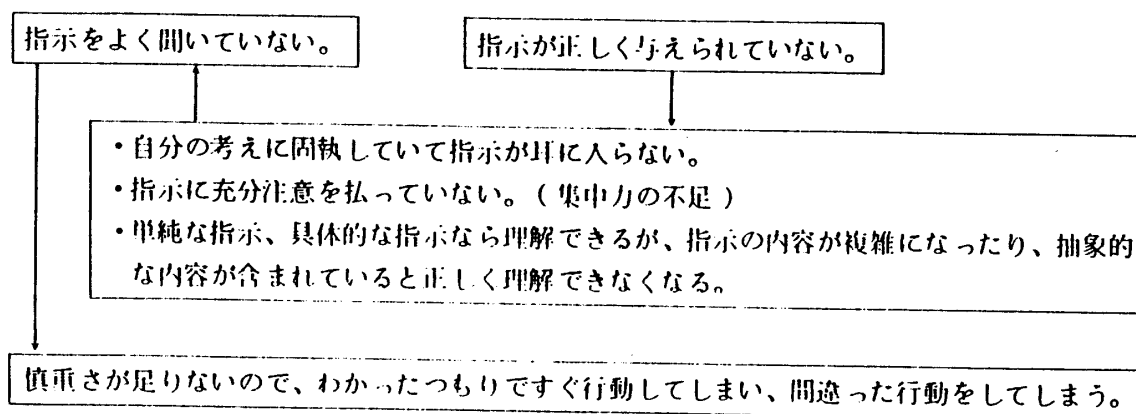 指示をよく聞いていない。
指示が正しく与えられていない。
・自分の考えに固執していて指示が耳に入らない。
・指示に充分注意を払っていない。(集中力の不足)
・単純な指示、具体的な指示なら理解できるが、指示の内容が複雑になったり、抽象的
な内容が含まれていると正しく理解できなくなる。
慎重さが足りないので、わかったつもりですぐ行動してしまい、間違った行動をしてしまう。